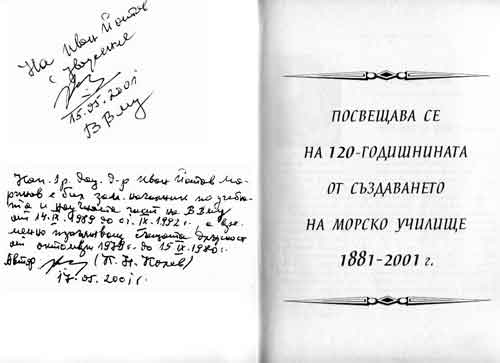 На Иван Йотов
с уважение
15.05.2001
ВВМУ
Кап. I р. доц. д-р Иван Йотов Ма-
ринов е бил зам. началник по учеб-
ната и научната част на ВВМУ
от 14.IX.1989 до IX.1992 г. а вре-
менно изпълняващ същата длъжност
от октомври до 15.IX.
Автор: (П. Н.
17.05.2001 г.
ПОСВЕЩАВА СЕ
НА 120-ГОДИШНИНАТА
ОТ СЪЗДАВАНЕТО
НА МОРСКО УЧИЛИЩЕ
1881-2001 г.